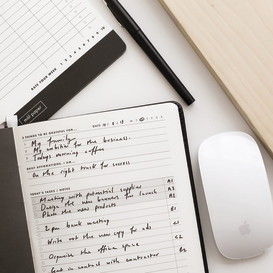 RATE YOUR WEEK 1 2 3 4 5 6 7 8 9 10
mål paper
3 THINGS TO BE GRATEFUL FOR...
1. My family
2. My ambition for the business.
3. Todays morning coffee
DAILY AFFIRMATIONS. I AM...
On the right track for success
TODAY'S TASKS / NOTES
Meeting with potential supplier A1
Design the new banners for launch A2
Photo the new products A3
2pm bank meeting
Write out the new copy for ads
Organise the office space
Get in contact with contractor